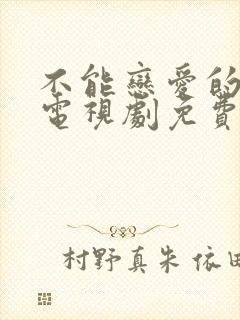 不能戀愛的
電視劇免費
村野真朱 依田